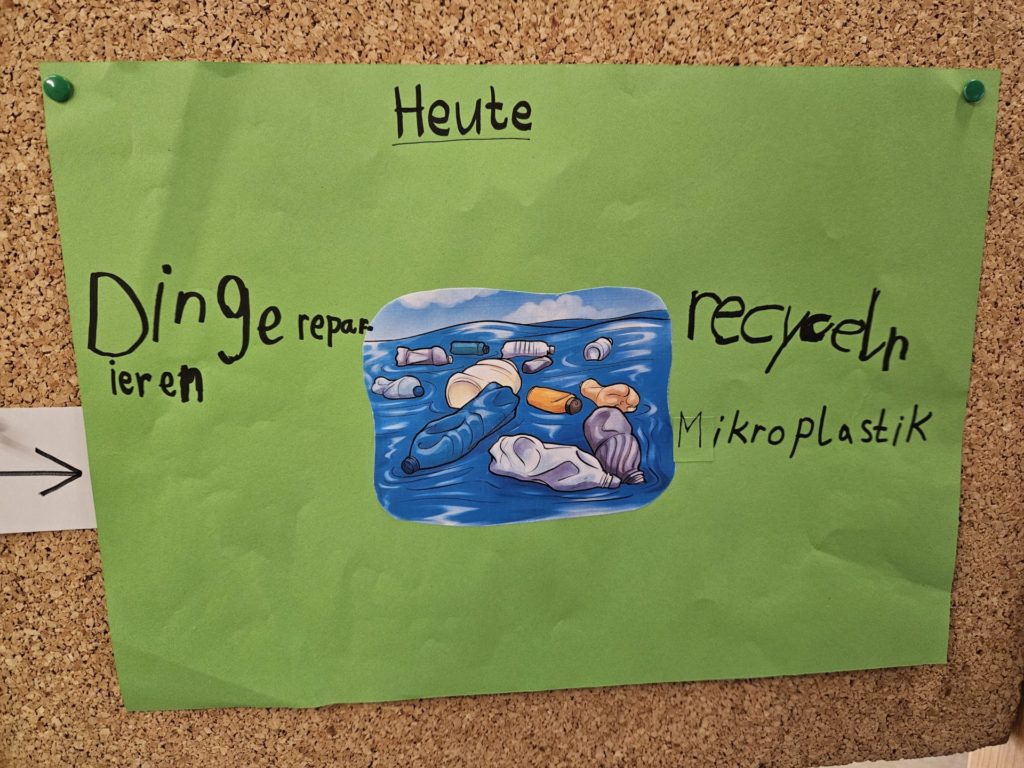 Heute
Dinge repar-
ieren
recyceln
Mikroplastik